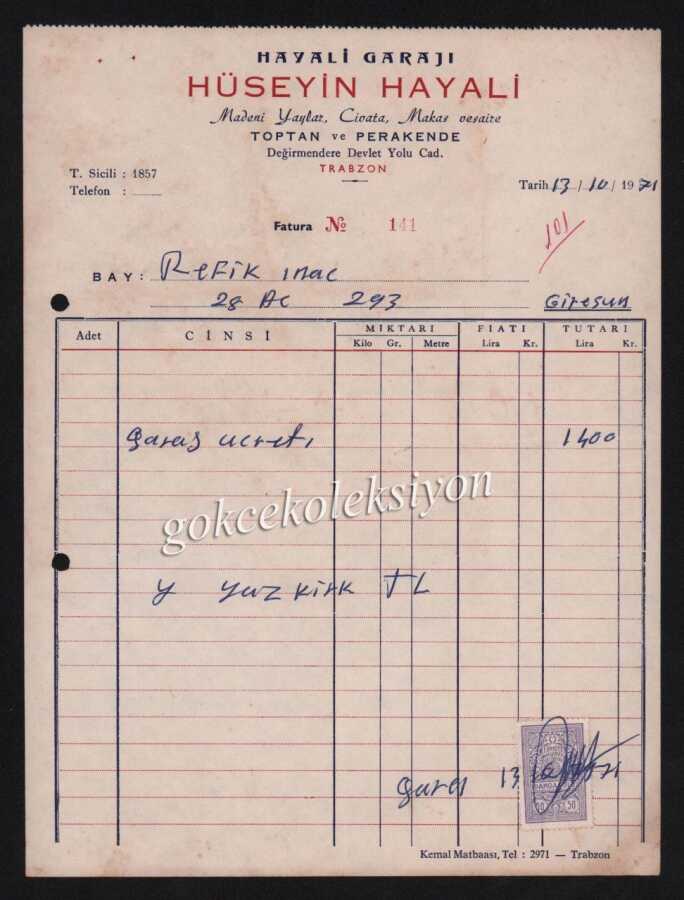 HAYALİ GARAJI
HÜSEYİN HAYALİ
Madeni Yaylar, Civata, Makas vesaire
TOPTAN ve PERAKENDE
Değirmendere Devlet Yolu Cad.
TRABZON
T. Sicili : 1857
Telefon :
Tarih 13 / 10 / 1971
Fatura № 141
101
BAY: Refik inac
28 AC 293 Giresun
Adet CİNSİ MIKTARI FIATI TUTARI
Kilo Gr. Metre Lira Kr. Lira Kr.
garaj ucreti 1400
gokcekoleksiyon
y yuz kirk TL
13 10 71
50 50
Kemal Matbaası, Tel : 2971 — Trabzon